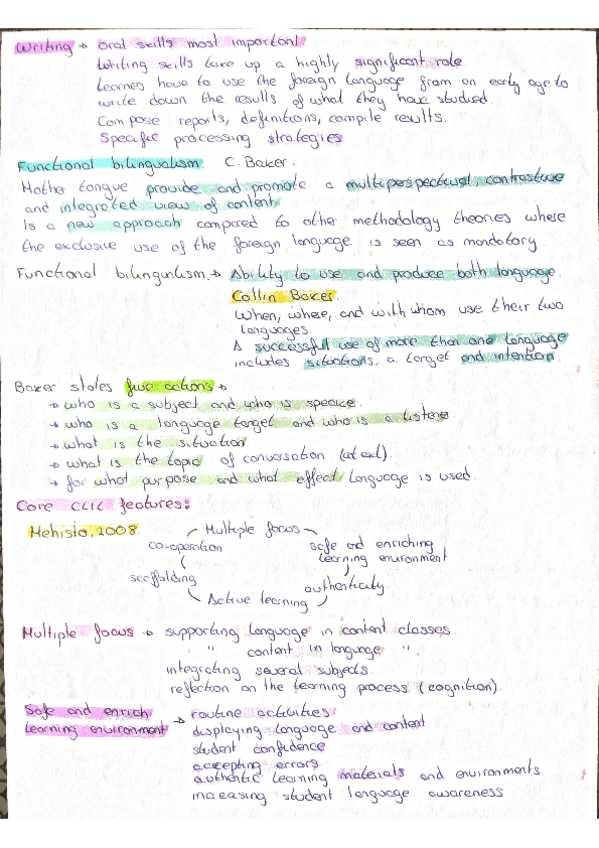 Writing → oral skills most important!
Writing skills take up a highly significant role
Learners have to use the foreign language from an early age to
write down the results of what they have studied.
Compose reports, definitions, compile results.
Specific processing strategies
Functional bilingualism. C. Baker.
Mother tongue provide and promote a multiperspectival, contrastive
and integrated view of content.
Is a new approach compared to other methodology theories where
the exclusive use of the foreign language is seen as mandatory.
Functional bilingualism → Ability to use and produce both language.
Collin Baker.
When, where, and with whom use their two
languages.
A successful use of more than one language
includes situations, a target and intention.
Baker states five actions →
→ who is a subject and who is speake.
→ who is a language target and who is a listener
→ what is the situation
→ what is the topic of conversation (at exl).
→ for what purpose and what effect language is used
Core CLIL features:
Mehisto, 2008.
Multiple focus
co-operation
safe and enriching
learning environment
scaffolding
authenticity
Active learning
Multiple focus → supporting language in content classes.
" content in language ".
integrating several subjects.
reflection on the learning process (cognition).
Safe and enrich
learning environment → routine activities
displaying language and content
student confidence
accepting errors
authentic learning materials and environments.
increasing student language awareness